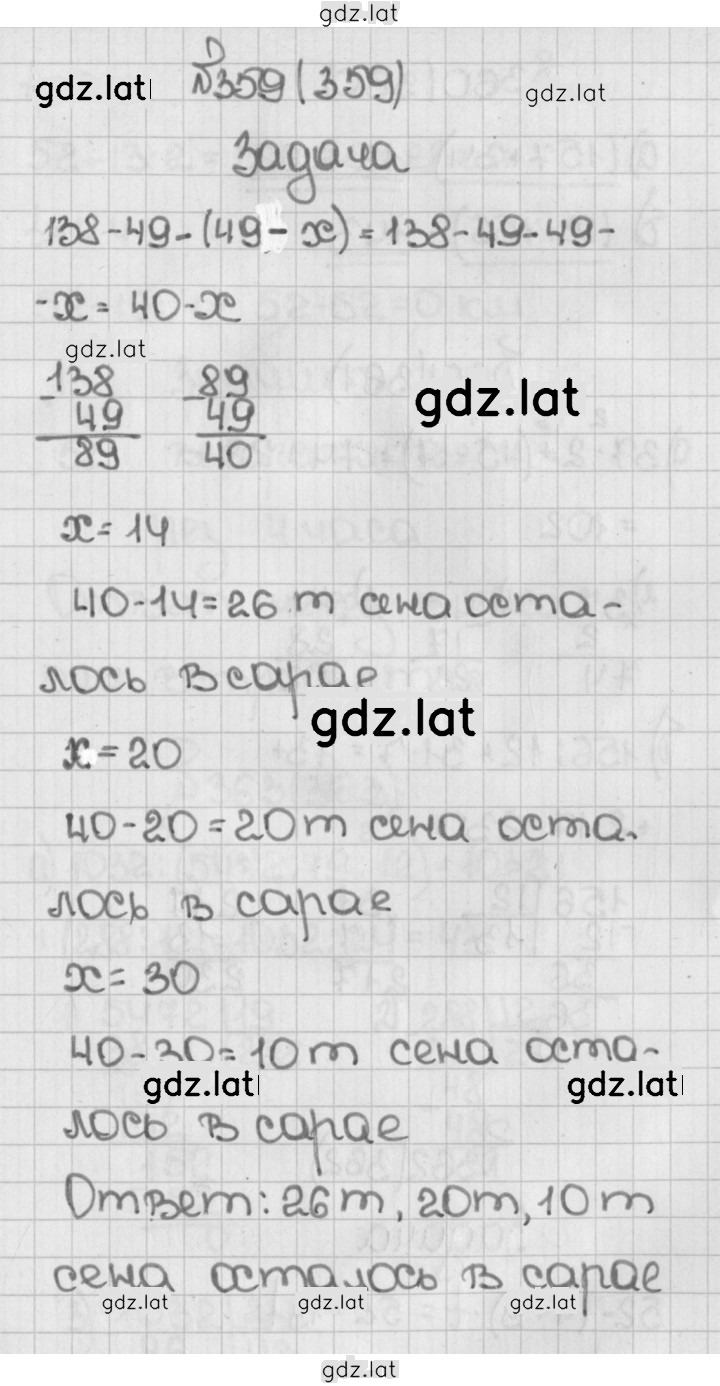 gdz.lat
№359 (359)
gdz.lat gdz.lat
Задача
138-49-(49-x)=138-49-49-
-x=40-x
gdz.lat
138 89
- 49 - 49
89 40
gdz.lat
x=14
40-14=26 т сена оста-
лось в сарае
gdz.lat
x=20
40-20=20т сена оста-
лось в сарае
x=30
40-30=10т сена оста-
gdz.lat gdz.lat
лось в сарае
Ответ: 26т, 20т, 10т
сена осталось в сарае
gdz.lat gdz.lat gdz.lat
gdz.lat